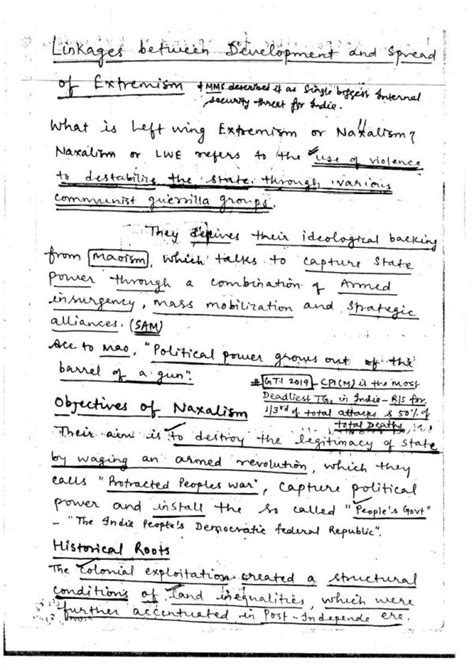 Linkages between Development and Spread
of Extremism * MMS described it as Single biggest Internal
security threat for India.
What is Left wing Extremism or Naxalism?
Naxalism or LWE refers to the "use of violence
to destabilise the state through various
communist guerrilla groups.
They derives their ideological backing
from Maoism, which talks to capture State
power through a combination of Armed
insurgency, mass mobilization and strategic
alliances. (SAM)
Acc to Mao, "Political power grows out of the
barrel of a gun".
* GTI 2019 - CPI(M) is the most
Deadliest TGs in India - R/s for
1/3rd of total attacks & 50% of
total Deaths
Objectives of Naxalism
Their aim is to destroy the legitimacy of State
by waging an armed revolution, which they
calls "Protracted Peoples War", capture political
power and install the so called "People's Govt"
- "The India People's Democratic federal Republic".
Historical Roots
The Colonial exploitation created a structural
conditions of land inequalities, which were
further accentuated in Post-Independe era.